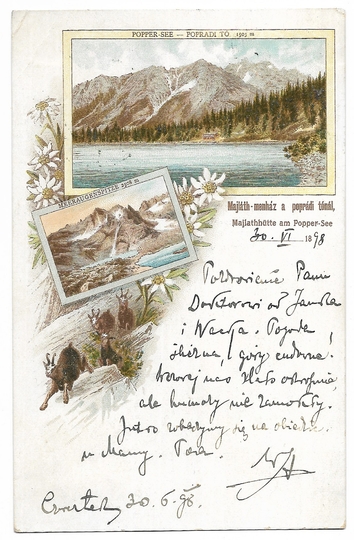 POPPER-SEE — POPRADI TÓ 1503 m
MEERAUGENSPITZE 2508 m
Majláth-menház a poprádi tónál,
Majlathhütte am Popper-See
30. VI 1898
Pozdrowienie Panu
Doktorowi od Janka
i Wacka. Pogoda
śliczna, góry cudowne!
nas zlało
ale humory nie zamokły.
Jutro się na obiedzie
u Mamy.
Czwartek 30.6.98.